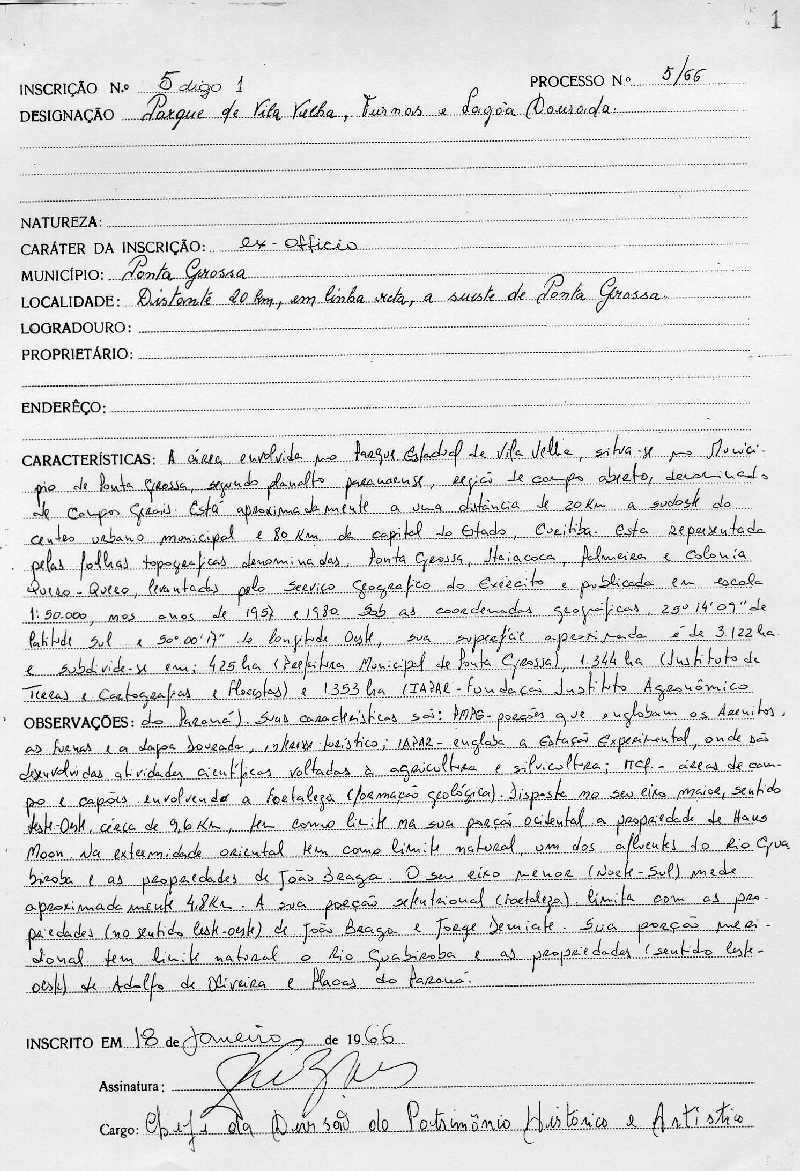 1
INSCRIÇÃO N.º 5 digo 1 PROCESSO Nº 5/66
DESIGNAÇÃO Parque de Vila Velha, Furnas e Lagôa Dourada.
NATUREZA:
CARÁTER DA INSCRIÇÃO: ex-officio
MUNICÍPIO: Ponta Grossa
LOCALIDADE: Distante 20 km, em linha reta, a sueste de Ponta Grossa.
LOGRADOURO:
PROPRIETÁRIO:
ENDERÊÇO:
CARACTERÍSTICAS: A área envolvida no Parque Estadual de Vila Velha, situa-se no Municí-
pio de Ponta Grossa, segundo planalto paranaense, região de campo aberto, denominado
de Campos Gerais. Está aproximadamente a uma distância de 20 Km a sudeste do
centro urbano municipal e 80 Km da capital do Estado, Curitiba. Esta representada
pelas folhas topograficas denominadas, Ponta Grossa, Itaiacoca, Palmeira e Colonia
Quero-Quero, levantadas pelo Serviço Geografico do Exército e publicada em escola
1:50.000, nos anos de 1957 e 1980. Sob as coordenadas geográficas, 25º 14' 09" de
latitude Sul e 50º 00' 17" de longitude Oeste, sua superfície aproximada é de 3.122 ha
e subdivide-se em: 425 ha (Prefeitura Municipal de Ponta Grossa), 1.344 ha (Instituto de
Terras e Cartografias e Florestas) e 1353 ha (IAPAR-Fundação Instituto Agronômico
OBSERVAÇÕES: do Paraná). Suas características são: PMPG-porções que englobam os Arenitos,
as Furnas e a Lagoa Dourada, interesse turístico; IAPAR- engloba a Estação Experimental, onde são
desenvolvidas atividades científicas voltadas à agricultura e silvicultura; ITCF- áreas de cam-
po e capões envolvendo a Fortaleza (formação geológica). Disposta no seu eixo maior, sentido
leste-Oeste, cerca de 9,6 Km, tem como limite na sua porção ocidental a propriedade de Hans
Moon. Na extremidade oriental tem como limite natural, um dos afluentes do Rio Gua
biroba e as propriedades de João Braga. O seu eixo menor (Norte-Sul) mede
aproximadamente 4,8 Km. A sua porção setentrional (Fortaleza) limita com as pro-
priedades (no sentido leste-oeste) de João Braga e Jorge Demiate. Sua porção meri-
dional tem limite natural o Rio Guabiroba e as propriedades (sentido leste-
oeste) de Adolfo de Oliveira e Placas do Paraná.
INSCRITO EM 18 de Janeiro de 1966
Assinatura:
Cargo: Chefe da Divisão do Patrimônio Histórico e Artístico